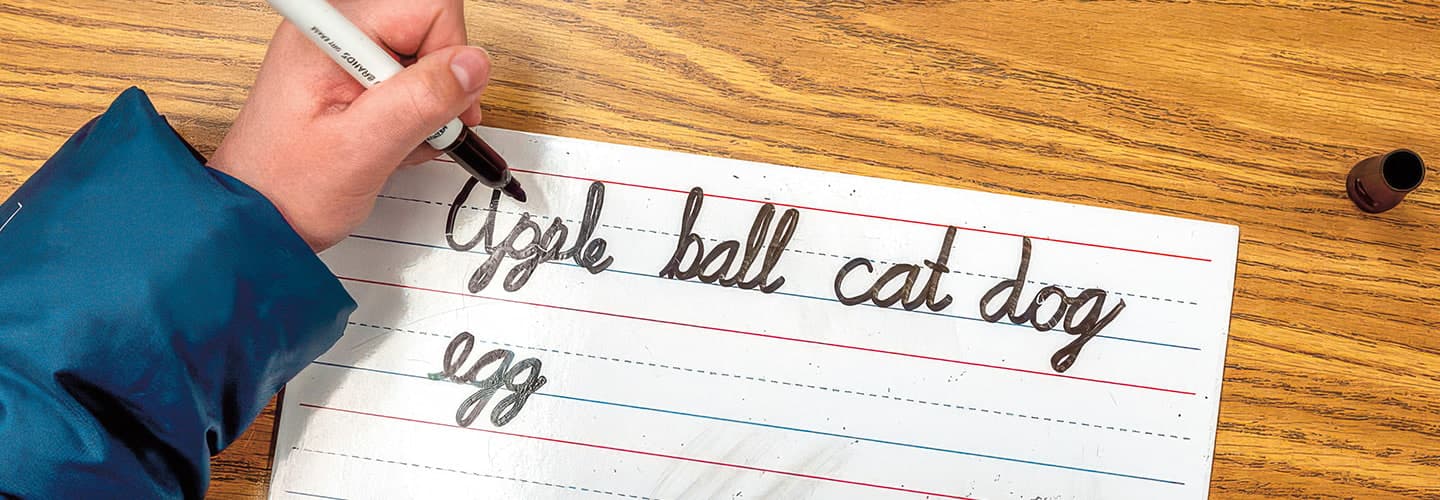 Apple ball cat dog
egg
BRANDS